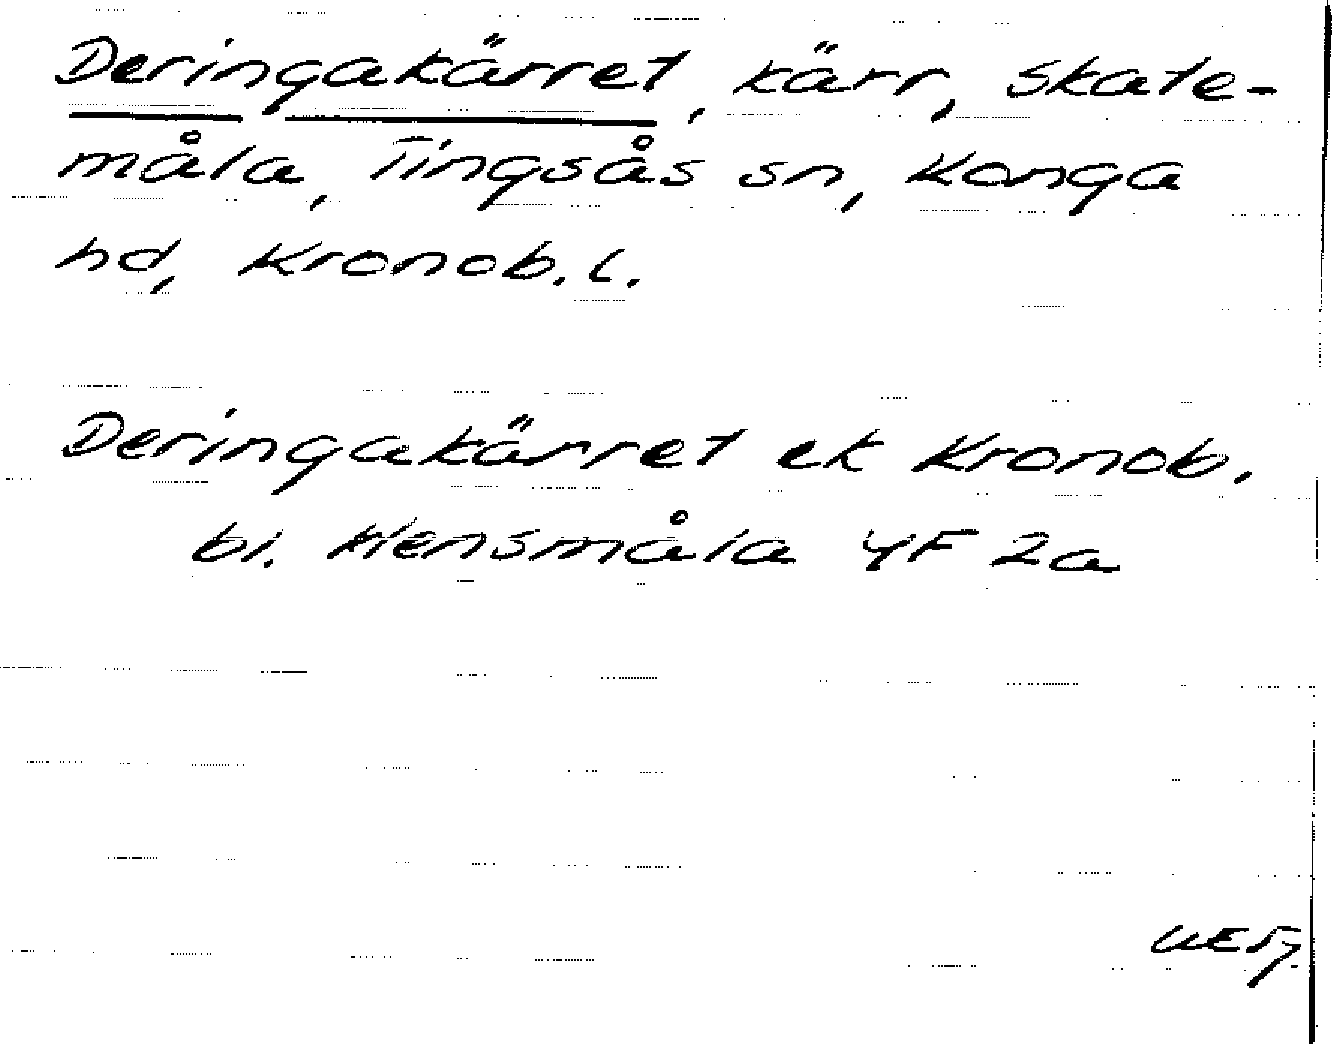 Deringakärret, kärr, Skate-
måla, Tingsås sn, Konga
hd, Kronob. l.
Deringakärret ek Kronob.
bl. Klensmåla 4F 2a